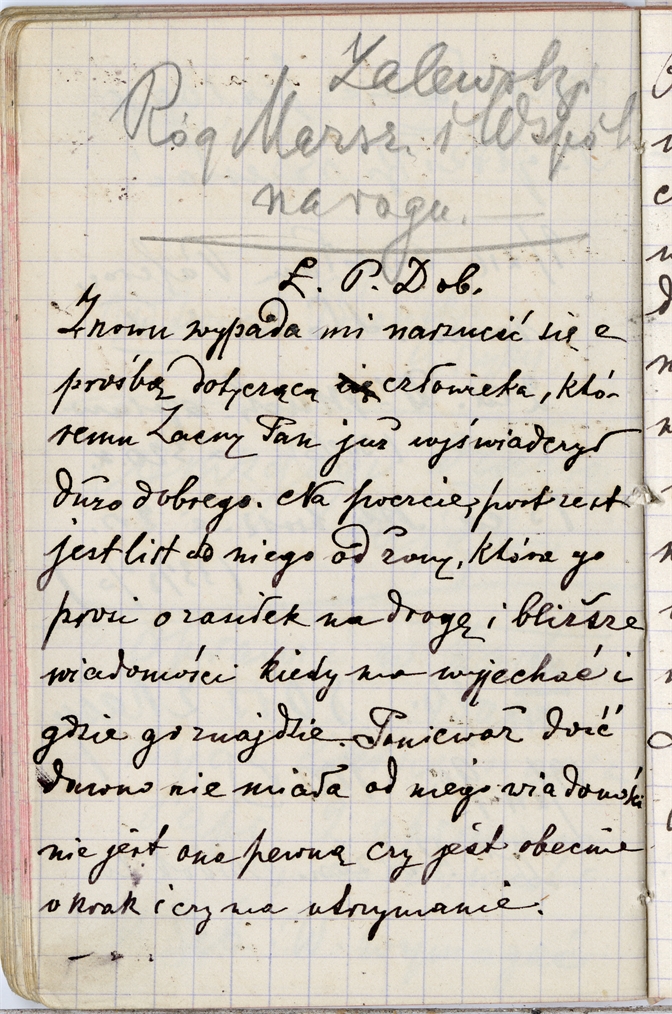 Zalewski
Róg Marsz. i Wspól.
na rogu.
Ł. P. Dob.
Znowu wypada mi narzucić się z
prośbą dotyczącą człowieka, któ-
remu Zacny Pan już wyświadczył
dużo dobrego. Na poczcie, post rest
jest list do niego od żony, która go
prosi o zasiłek na drogę i bliższe
wiadomości kiedy ma wyjechać i
gdzie go znajdzie. Ponieważ dość
dawno nie miała od niego wiadomości
nie jest ona pewną czy jest obecnie
w Krak i czy ma utrzymanie.